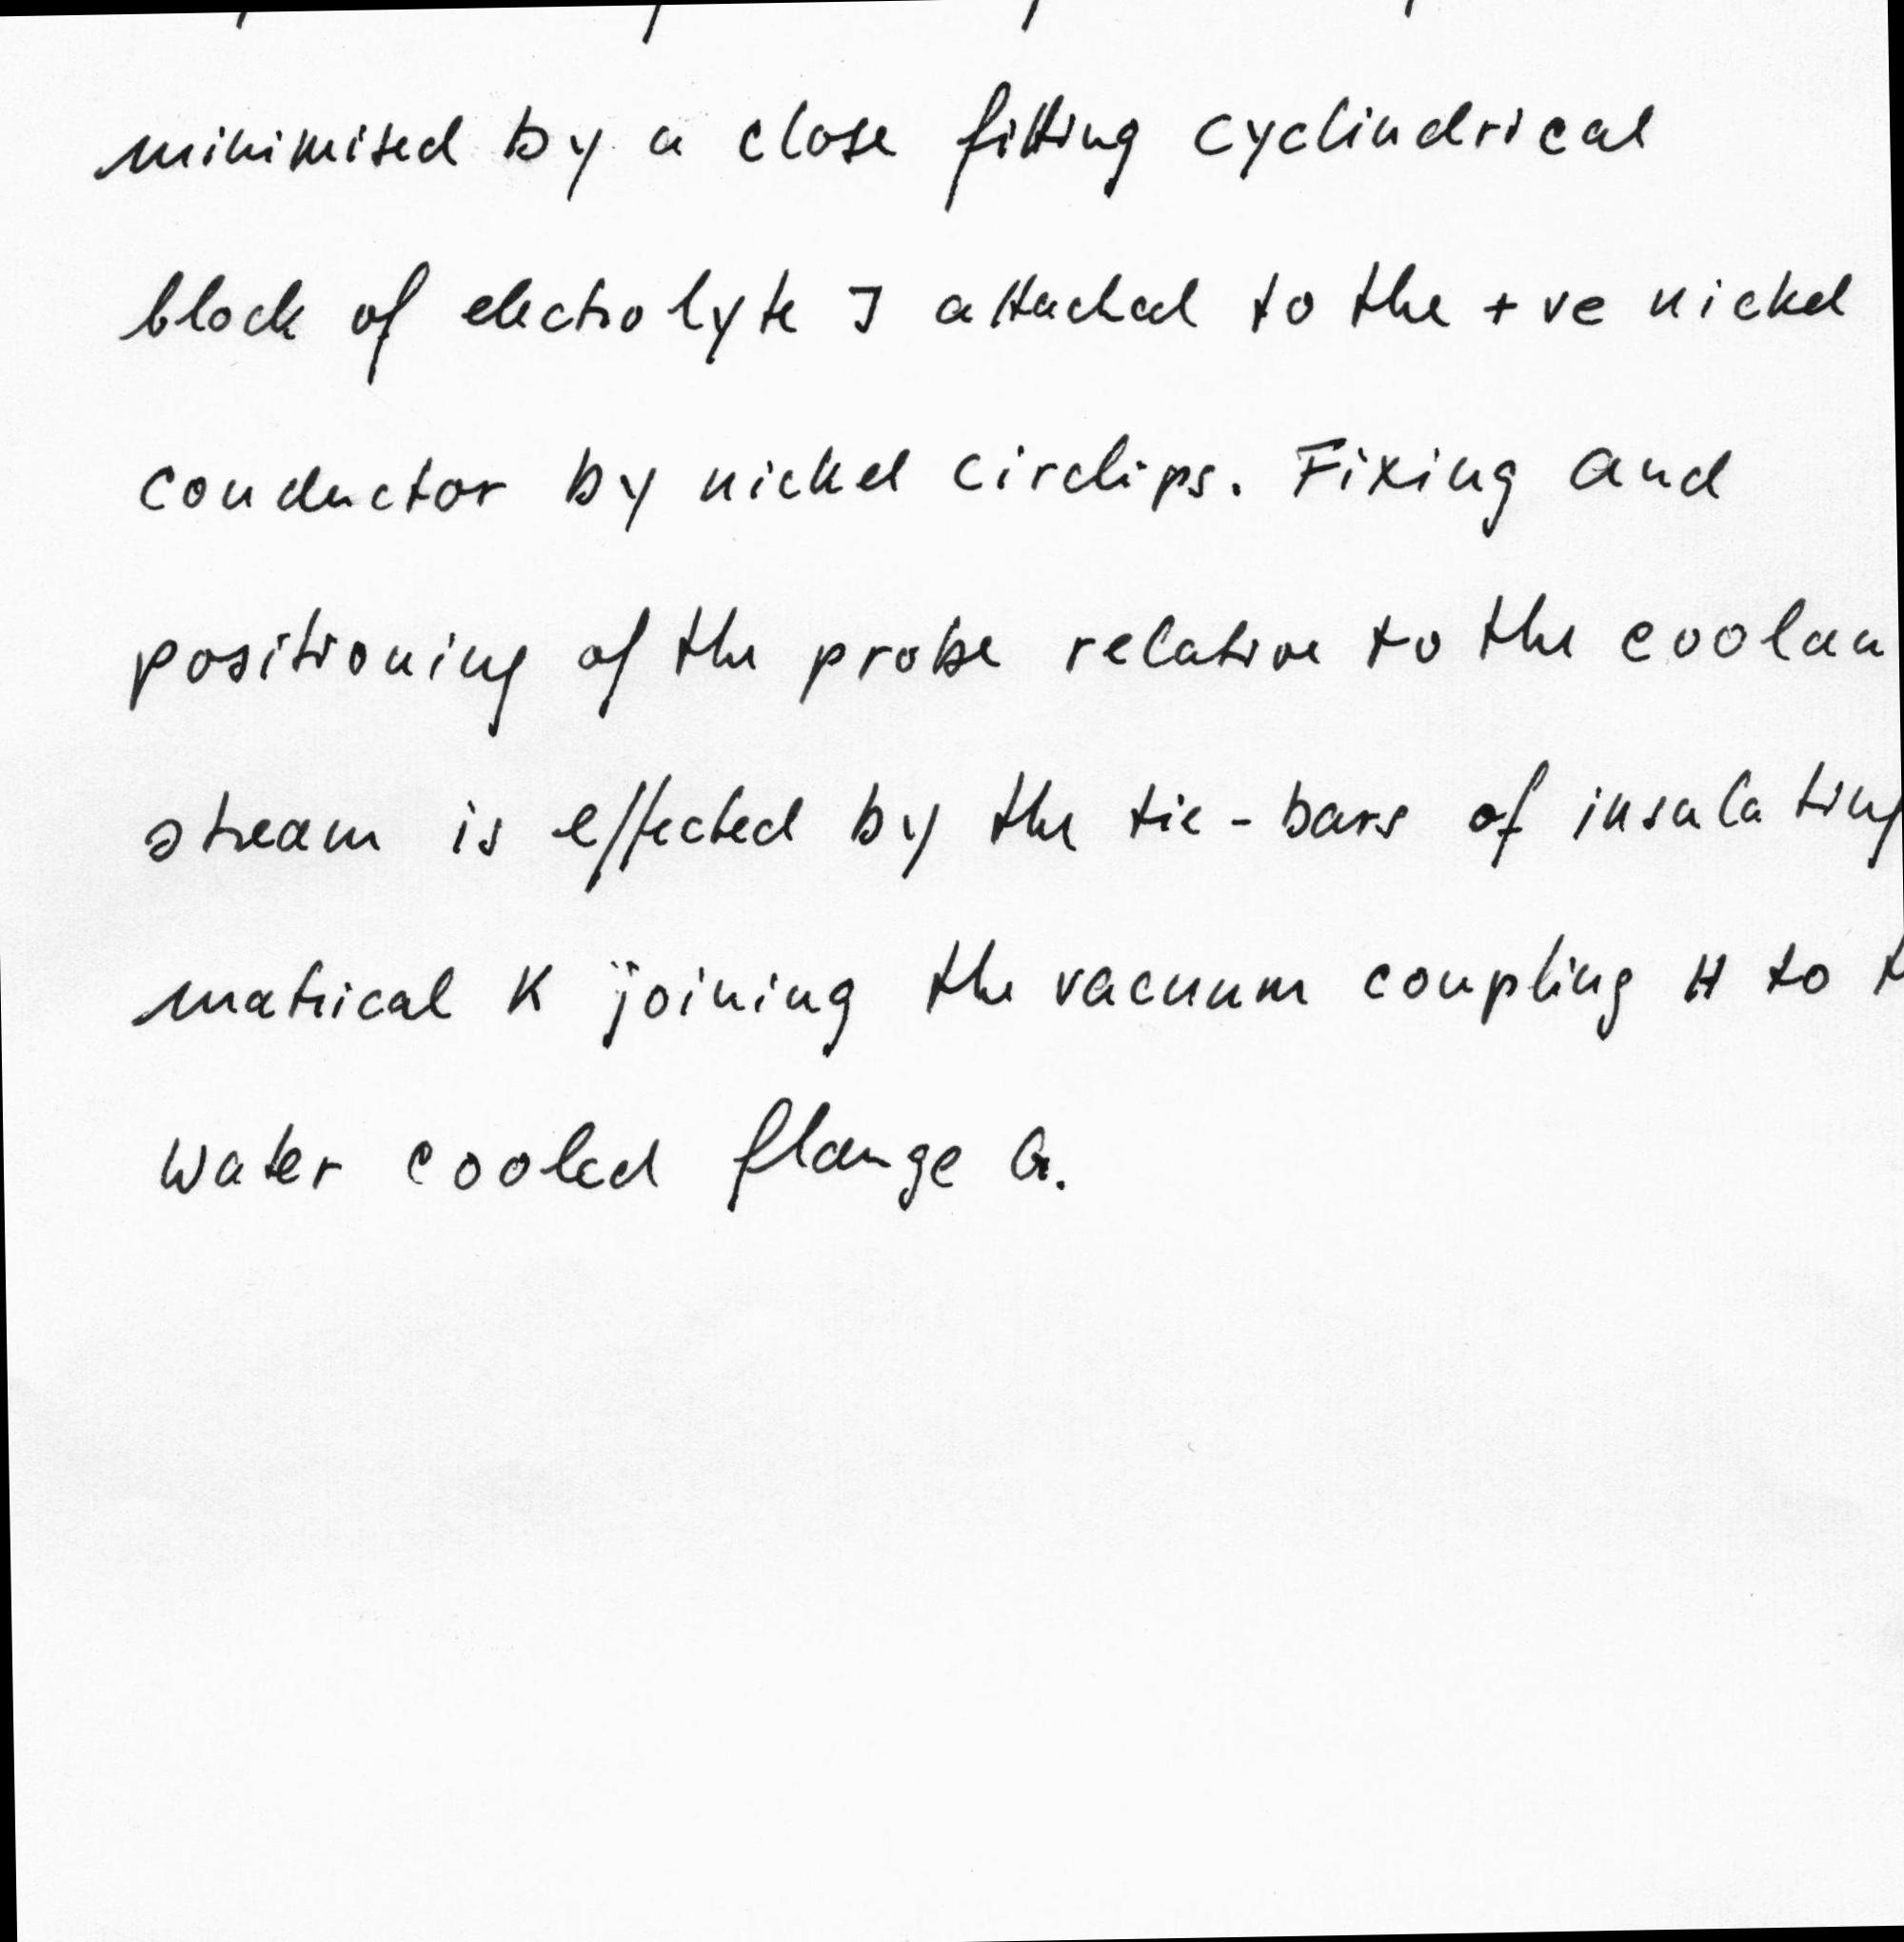 minimised by a close fitting cyclindrical
block of electrolyte J attached to the +ve nickel
conductor by nickel circlips. Fixing and
positioning of the probe relative to the coolan
stream is effected by the tie-bars of insulating
matrical K joining the vacuum coupling H to t
water cooled flange G.